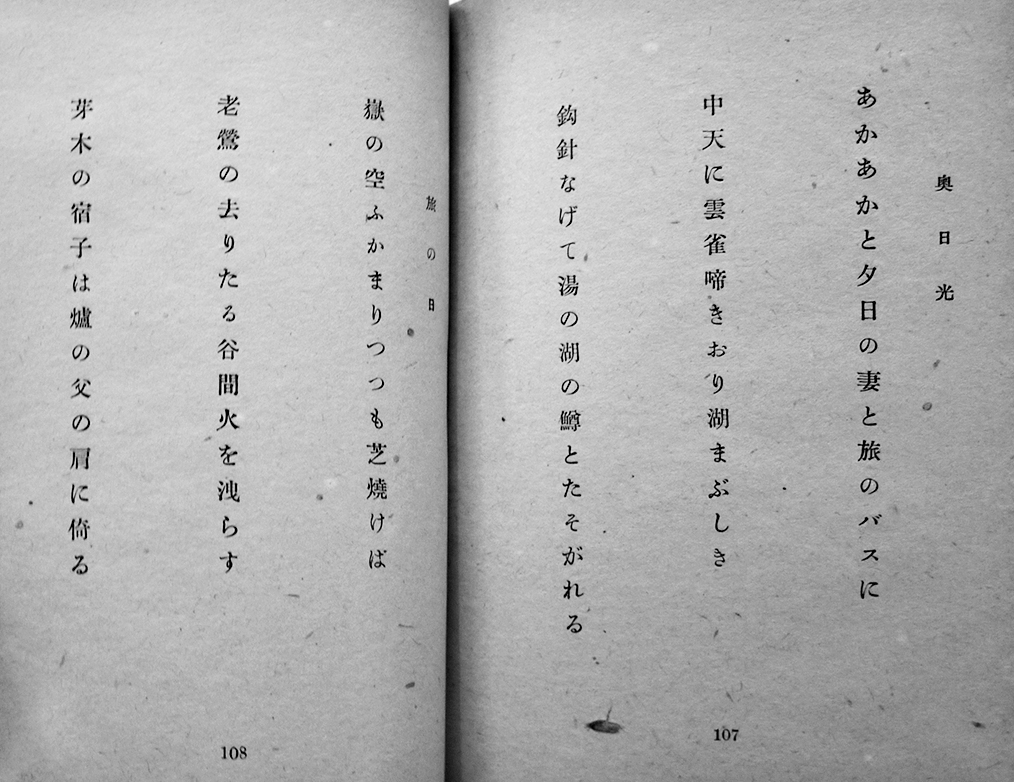 奥日光
あかあかと夕日の妻と旅のバスに
中天に雲雀啼きおり湖まぶしき
鈎針なげて湯の湖の鱒とたそがれる
107
旅の日
嶽の空ふかまりつつも芝燒けば
老鶯の去りたる谷間火を洩らす
芽木の宿子は爐の父の肩に倚る
108